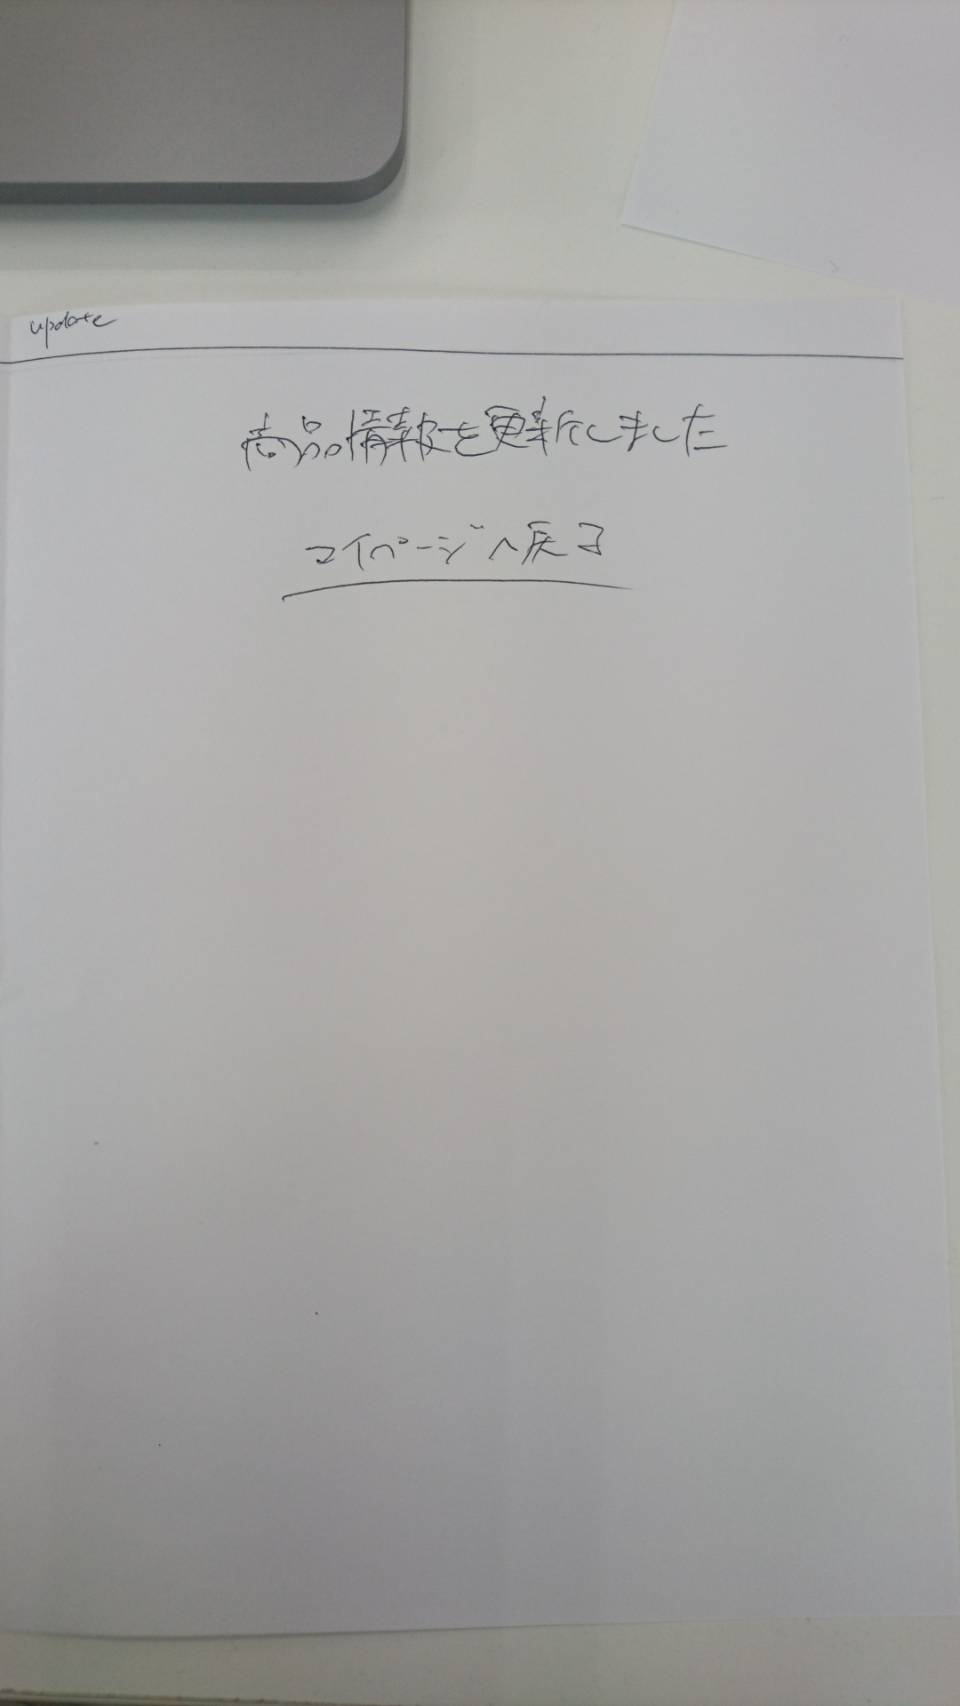 update
商品情報を更新しました
マイページへ戻る